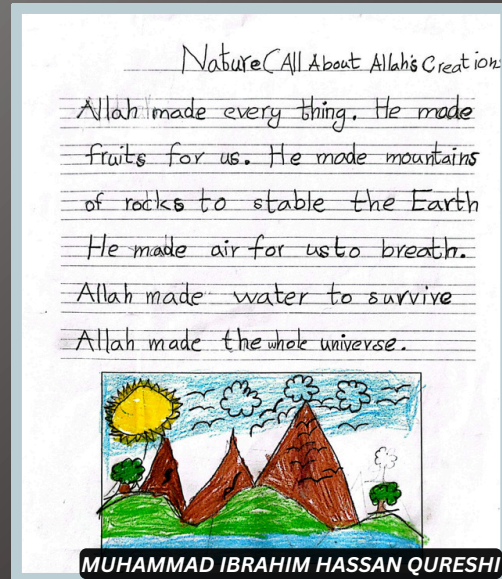 Nature (All About Allah's Creation
Allah made every thing. He made
fruits for us. He made mountains
of rocks to stable the Earth
He made air for us to breath.
Allah made water to survive
Allah made the whole universe.
MUHAMMAD IBRAHIM HASSAN QURESHI